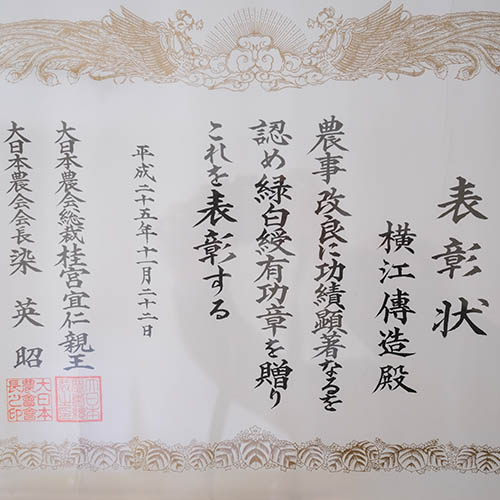 表彰状
横江傳造殿
農事改良に功績顕著なるを
認め緑白綬有功章を贈り
これを表彰する
平成二十五年十一月二十二日
大日本農会総裁桂宮宜仁親王
大日本農会会長染英昭
大日本
農會會
長之印